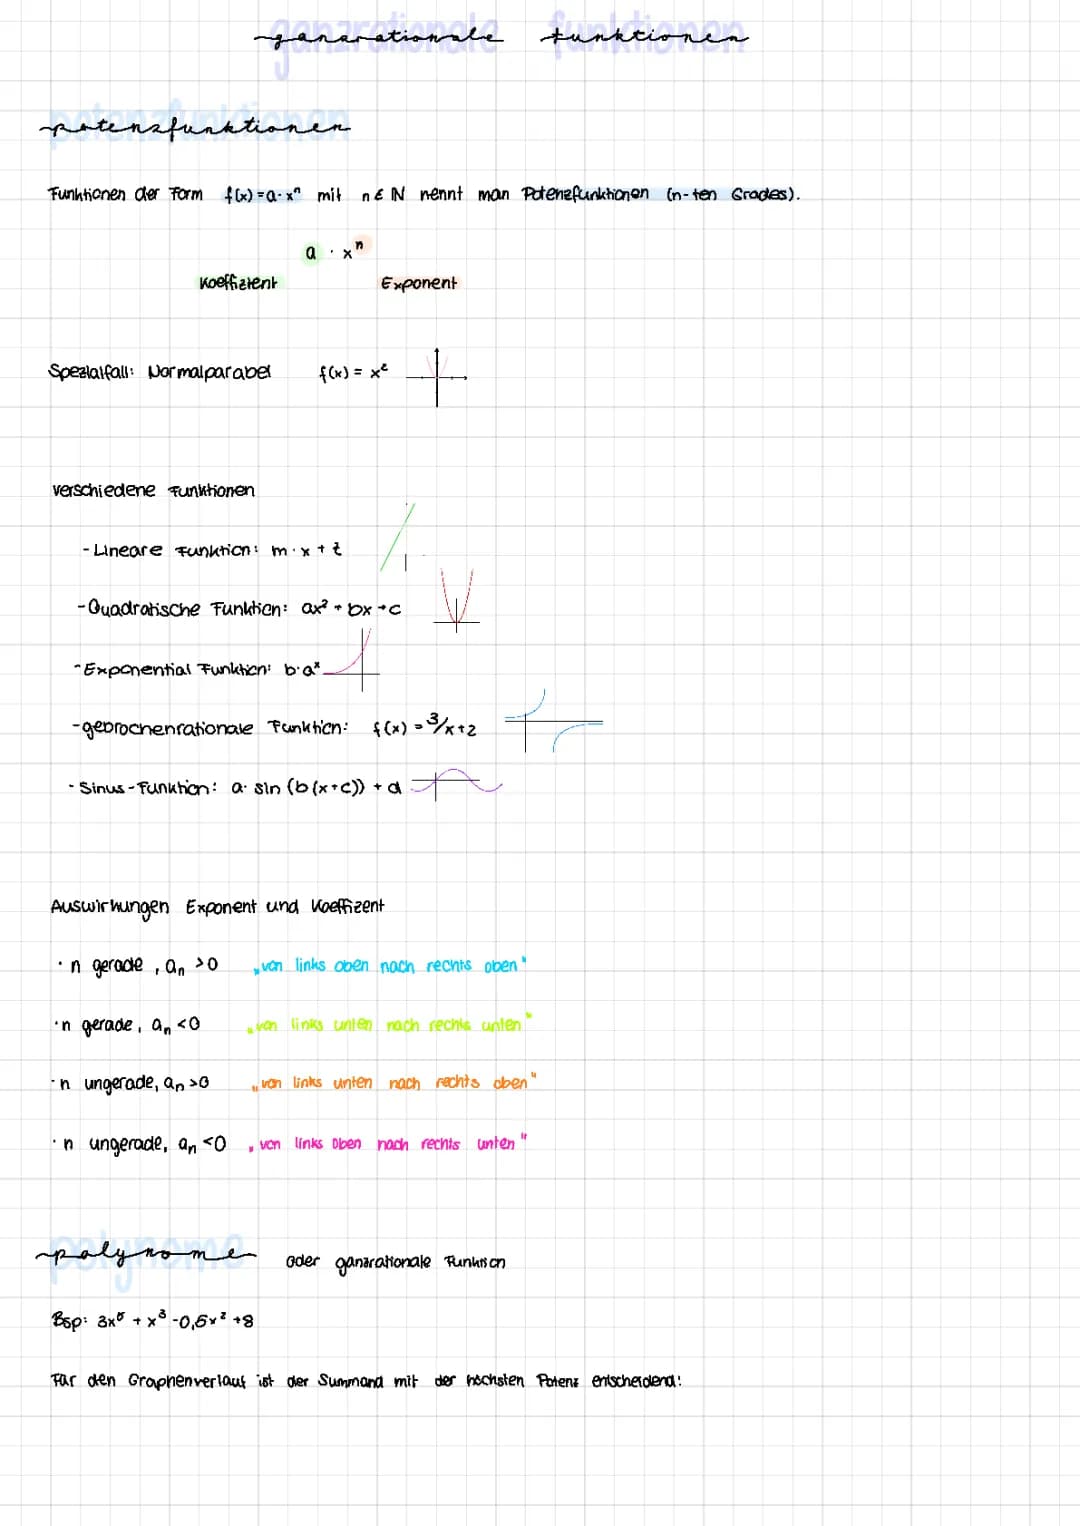 ganzrationale funktionen
potenzfunktionen
Funktionen der Form f(x) = a · xⁿ mit n ∈ ℕ nennt man Potenzfunktionen (n-ten Grades).
a · xⁿ
Koeffizient Exponent
Spezialfall: Normalparabel f(x) = x²
verschiedene Funktionen
- Lineare Funktion: m · x + t
- Quadratische Funktion: ax² + bx + c
- Exponential Funktion: b · aˣ
- gebrochenrationale Funktion: f(x) = 3/x+2
- Sinus-Funktion: a · sin (b(x+c)) + d
Auswirkungen Exponent und Koeffizent
· n gerade, aₙ > 0 „von links oben nach rechts oben"
· n gerade, aₙ < 0 „von links unten nach rechts unten"
· n ungerade, aₙ > 0 „von links unten nach rechts oben"
· n ungerade, aₙ < 0 „von links oben nach rechts unten"
polynome oder ganzrationale Funktion
Bsp: 3x⁵ + x³ - 0,5x² + 8
Für den Graphenverlauf ist der Summand mit der höchsten Potenz entscheidend!